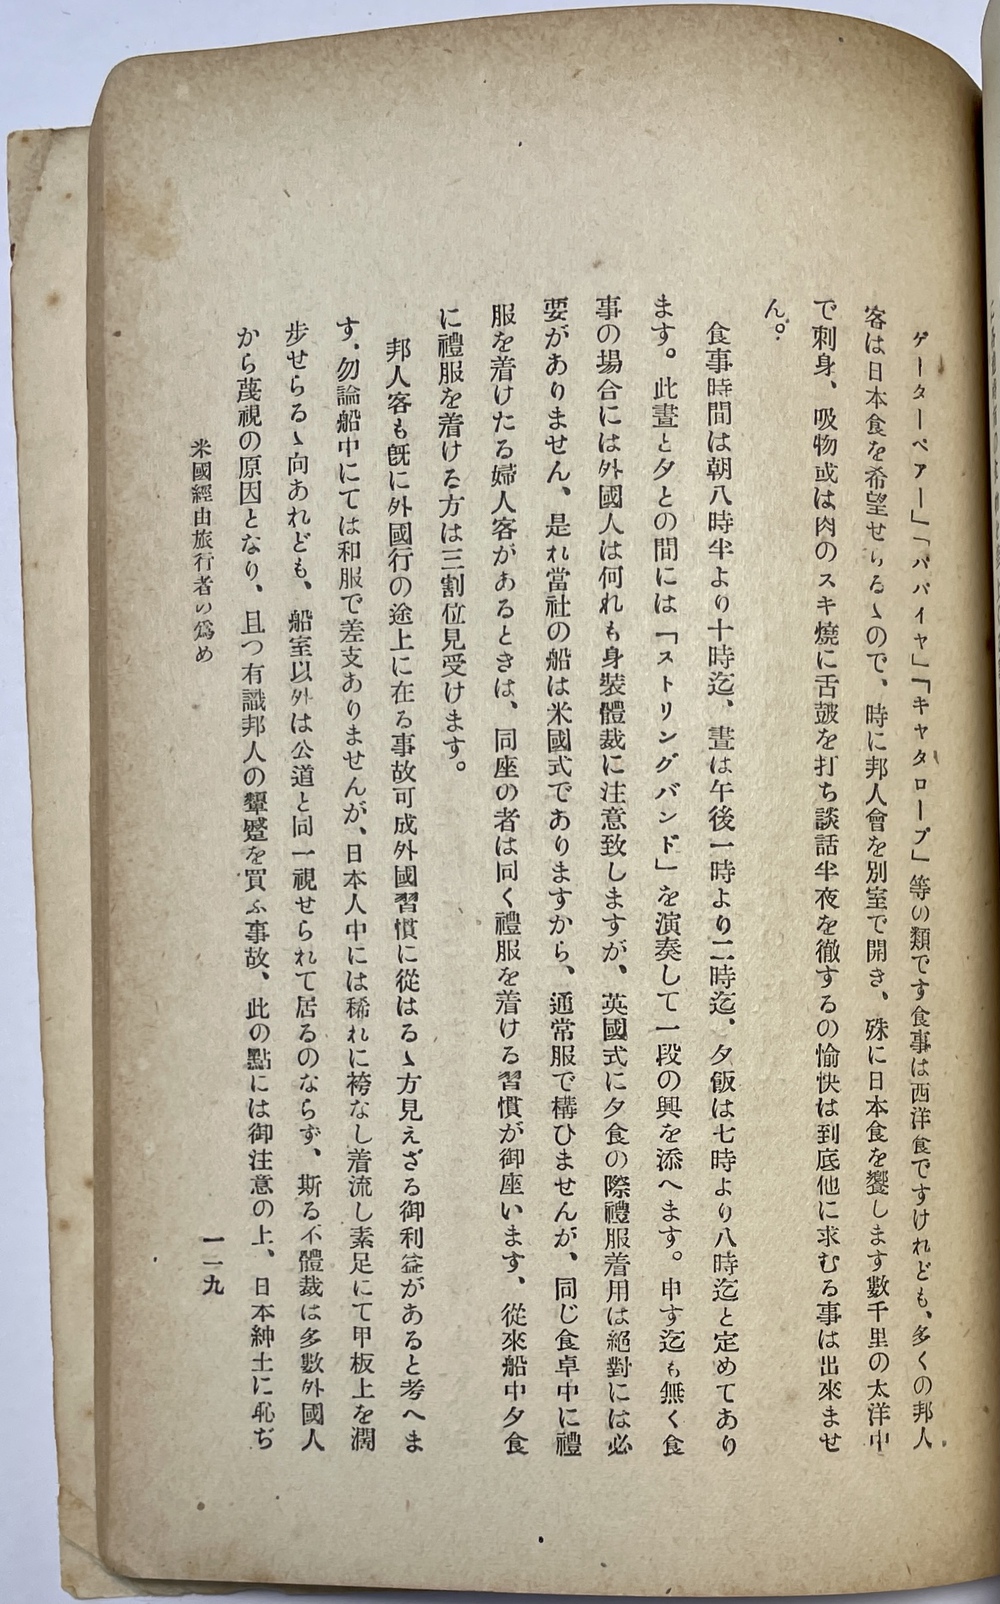 ゲーターペアー」「パパイヤ」「キャタロープ」等の類です食事は西洋食ですけれども、多くの邦人
客は日本食を希望せらるゝので、時に邦人會を別室で開き、殊に日本食を饗します數千里の太洋中
で刺身、吸物或は肉のスキ燒に舌皷を打ち談話半夜を徹するの愉快は到底他に求むる事は出來ませ
ん。
食事時間は朝八時半より十時迄、晝は午後一時より二時迄、夕飯は七時より八時迄と定めてあり
ます。此晝と夕との間には「ストリングバンド」を演奏して一段の興を添へます。申す迄も無く食
事の場合には外國人は何れも身裝體裁に注意致しますが、英國式に夕食の際禮服着用は絕對には必
要がありません、是れ當社の船は米國式でありますから、通常服で構ひませんが、同じ食卓中に禮
服を着けたる婦人客があるときは、同座の者は同く禮服を着ける習慣が御座います、從來船中夕食
に禮服を着ける方は三割位見受けます。
邦人客も旣に外國行の途上に在る事故可成外國習慣に從はるゝ方見えざる御利益があると考へま
す、勿論船中にては和服で差支ありませんが、日本人中には稀れに袴なし着流し素足にて甲板上を濶
步せらるゝ向あれども、船室以外は公道と同一視せられて居るのならず、斯る不體裁は多數外國人
から蔑視の原因となり、且つ有識邦人の顰蹙を買ふ事故、此の點には御注意の上、日本紳士に恥ぢ
米國經由旅行者の爲め
一二九